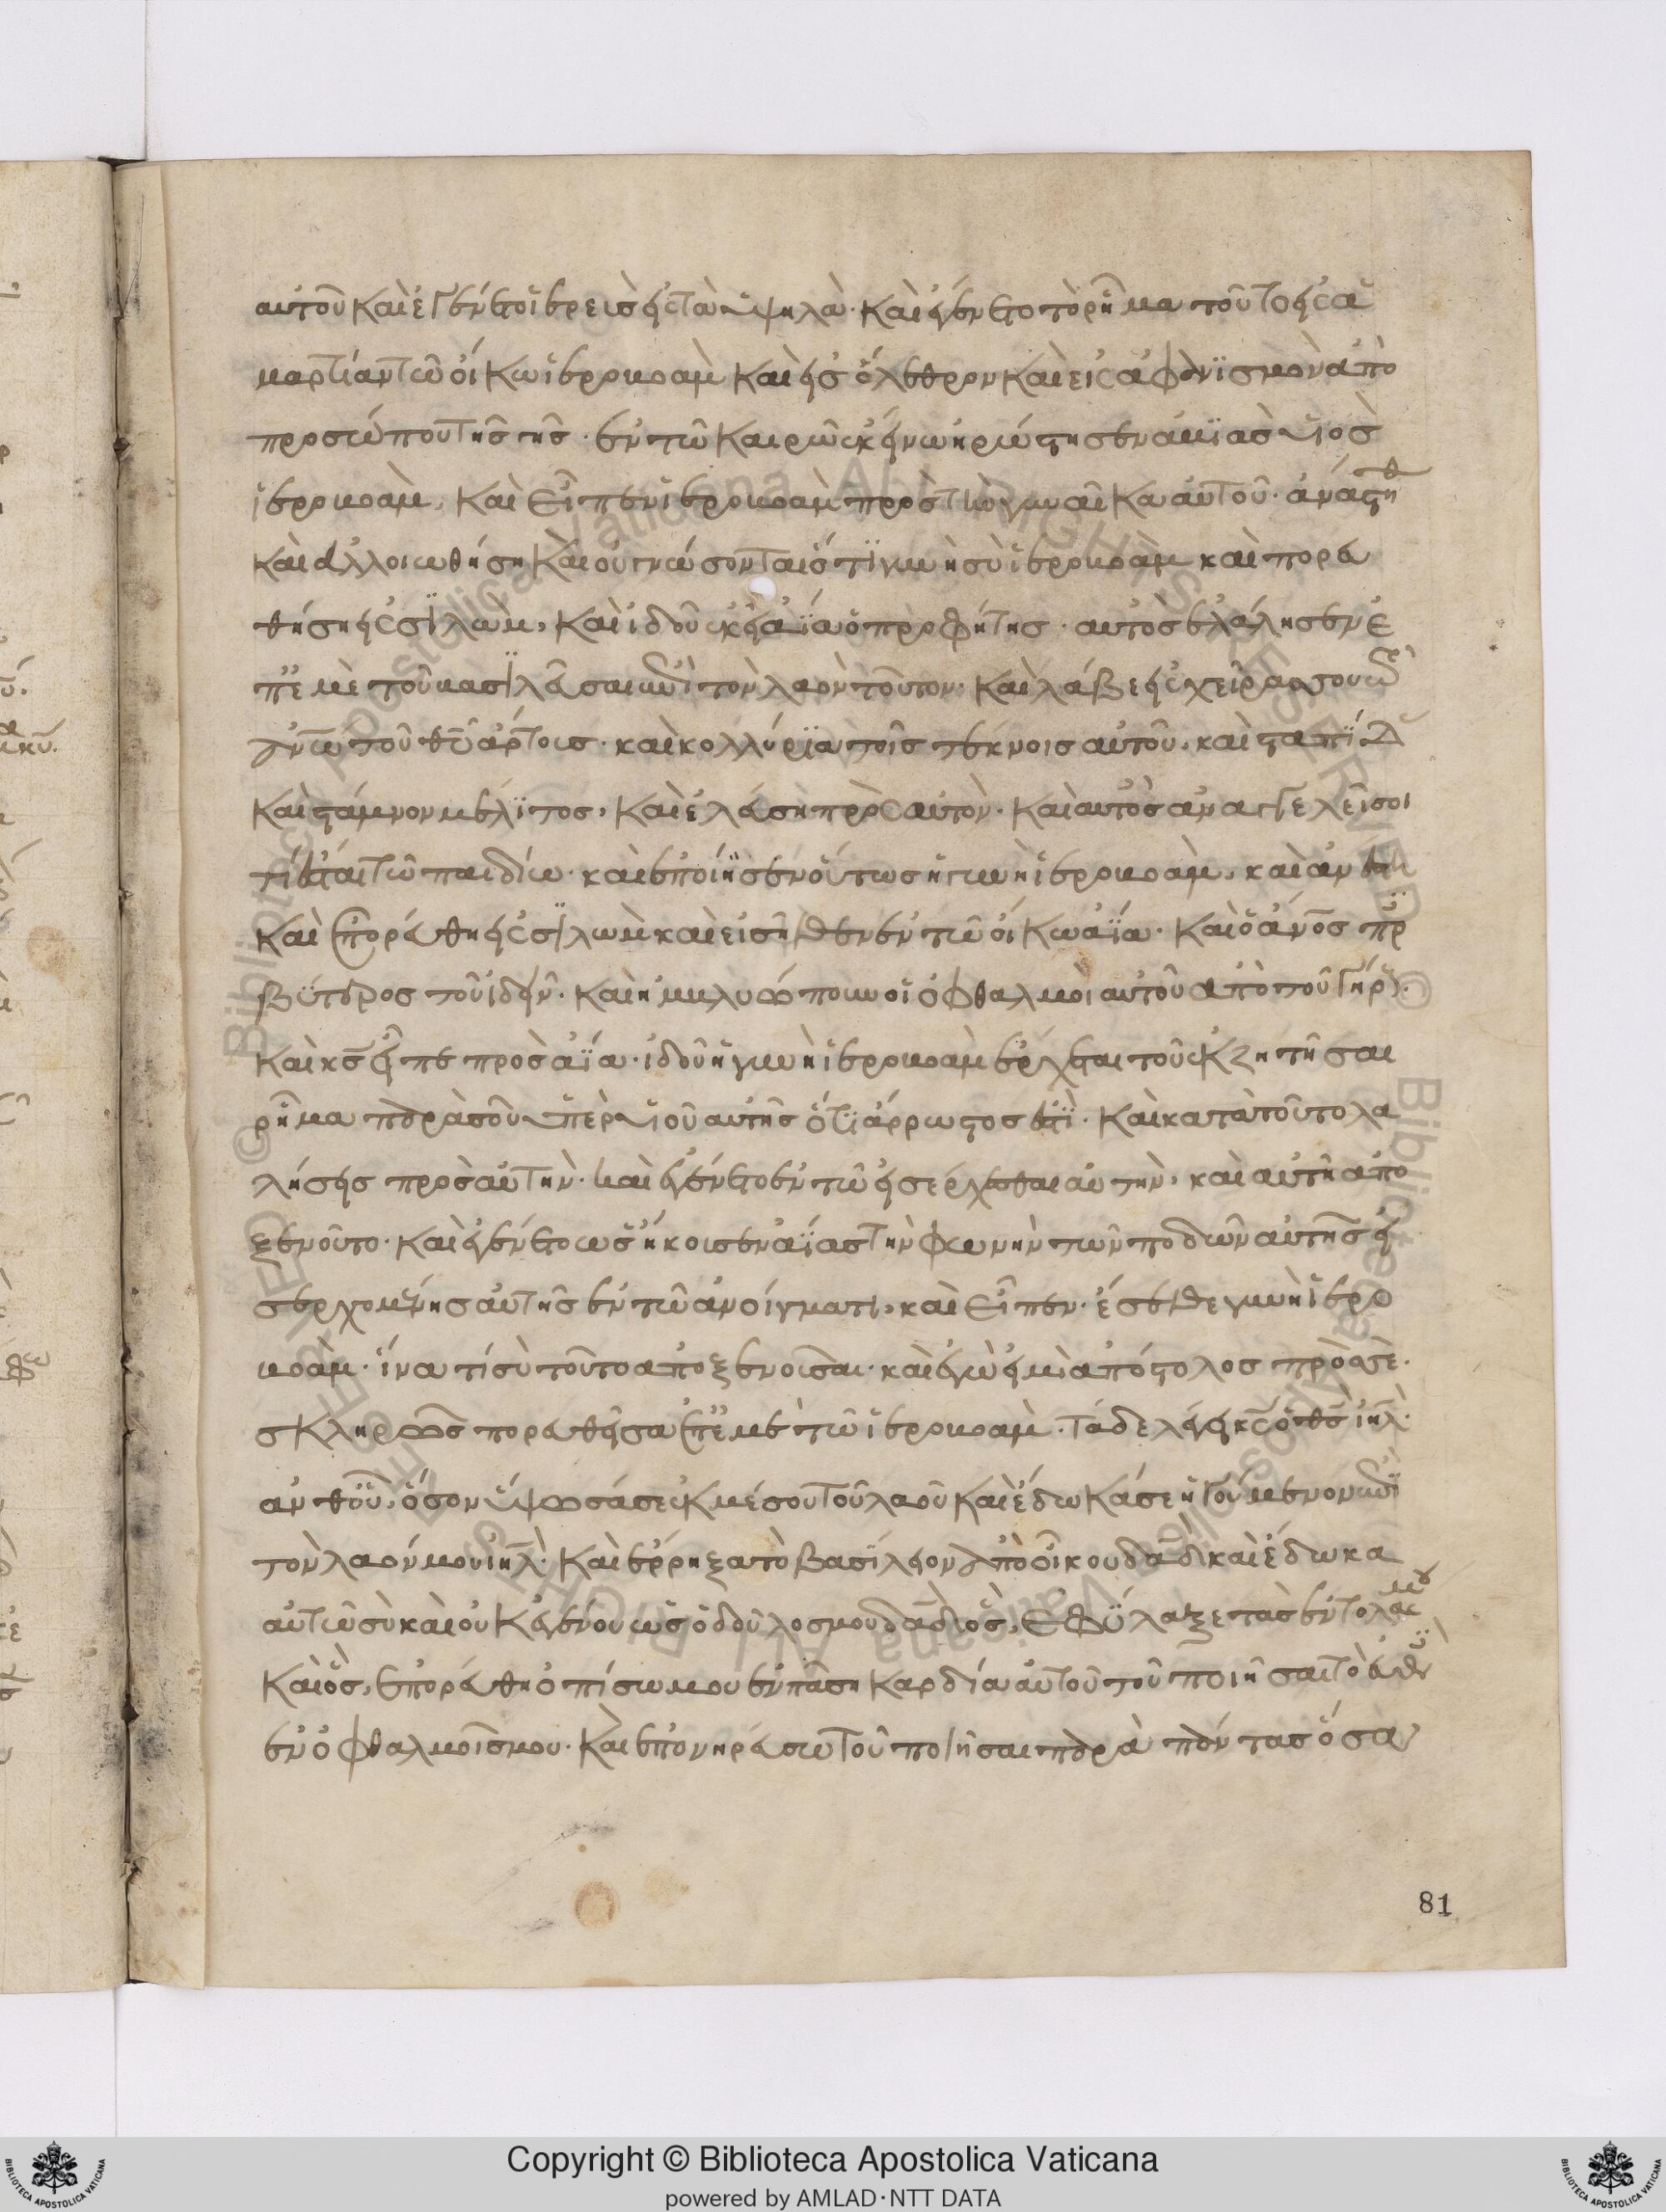 αυτοῦ καὶ ἐγένετο ἱερεὺς εἰς τὰ ὑψηλὰ· καὶ ἐγένετο τὸ ρῆμα τοῦτο εἰς ἁ
μαρτίαν τῶ οἴκω ἱεροβοὰμ καὶ εἰς ὄλεθρον καὶ εἰς ἀφανϊσμὸν ἀπὸ
προσώπου τῆς γῆς· ἐν τῶ καιρῶ ἐκείνω ἠρώστησεν ἀμϊὰς υἱὸς
ἱεροβοὰμ, καὶ εἶπεν ἱεροβοὰμ πρὸς τὴν γυναῖκα αὐτοῦ· ἀνάστηθ
καὶ ἀλλοιωθήση καὶ οὐ γνώσονται ὅτϊ γυνὴ σὺ ἱεροβοὰμ καὶ πορευ
θήση εἰς σϊλωμ, καὶ ἰδοῦ ἐκεῖ ἀϊὰ ὁ προφήτης· αυτὸς ἐλάλησεν ἐ
π' ἐμὲ τοῦ βασϊλεῦσαι ἐπὶ τὸν λαὸν τοῦτον· καὶ λάβε εἰς χεῖρα σου τῶ
ἀνῶ τοῦ θῦ ἄρτους· καὶ κολλύρϊα τοῖς τέκνοις αὐτοῦ, καὶ σταπϊδ
καὶ στάμνον μέλϊτος, καὶ ἐλεύση πρὸς αὐτὸν· καὶ αυτὸς ἀναγγελεῖ σοι
τί ἔσται τῶ παιδίω· καὶ ἐποίησεν οὕτως ἡ γυνὴ ἱεροβοὰμ, καὶ ἀνέστη
καὶ ἐπορεύθη εἰς σϊλωμ καὶ εἰσῆλθεν ἐν τῶ οἴκω ἀϊά· καὶ ὁ ἄνος πρ
βύτερος τοῦ ἰδεῖν· καὶ ἠμβλυώπουν οἱ ὀφθαλμοὶ αυτοῦ ἀπὸ τοῦ γήρ.
καὶ κς εἶπε πρὸς ἀϊά· ἰδοῦ ἡ γυνὴ ἱεροβοὰμ ἔρχεται τοῦ ἐκζητῆσαι
ρῆμα παρὰ σοῦ ὑπὲρ υἱοῦ αυτῆς ὅτϊ ἄρρωστος ἐστϊ· καὶ κατὰ τοῦτο λα
λήσεις πρὸς αὐτὴν· καὶ ἐγένετο ἐν τῶ εἰσέρχεσθαι αὐτὴν, καὶ αὐτὴ ἀπο
ξενοῦτο· καὶ ἐγένετο ὡς ἤκουσεν ἀϊὰς τὴν φωνὴν τῶν ποδῶν αὐτῆς εἰ
σερχομένης αὐτῆς ἐν τῶ ἀνοίγματι, καὶ εἶπεν· ἔσελθε γυνὴ ἱερο
βοὰμ· ἵνα τί σὺ τοῦτο ἀποξενοῦσαι· καὶ ἐγὼ εἰμὶ ἀπόστολος πρὸς σὲ·
σκληρὸς πορευθεῖσα εἰπὲ τῶ ἱεροβοὰμ· τάδε λέγει κς ὁ θς ἰηλ·
ἀνθ' οὗ, ὅσον ὕψωσά σε ἐκ μέσου τοῦ λαοῦ καὶ ἔδωκά σε ἡγούμενον ἐπὶ
τὸν λαόν μου ἰηλ· καὶ ἔρρηξα τὸ βασϊλειον ἀπὸ οἴκου δαδ καὶ ἔδωκα
αὐτῶ σὺ καὶ οὐκ ἐγένου ὡς ὁ δοῦλος μου δαδ ὃς, ἐφύλαξε τὰς ἐντολάς μου
καὶ ὃς, ἐπορεύθη ὀπίσω μου ἐν πάση καρδία αὐτοῦ τοῦ ποιῆσαι τὸ εὐθὲς
ἐν ὀφθαλμοῖς μου· καὶ ἐπονηρεύσω τοῦ ποιῆσαι παρὰ πάντας ὅσοι
81
Copyright © Biblioteca Apostolica Vaticana
powered by AMLAD·NTT DATA